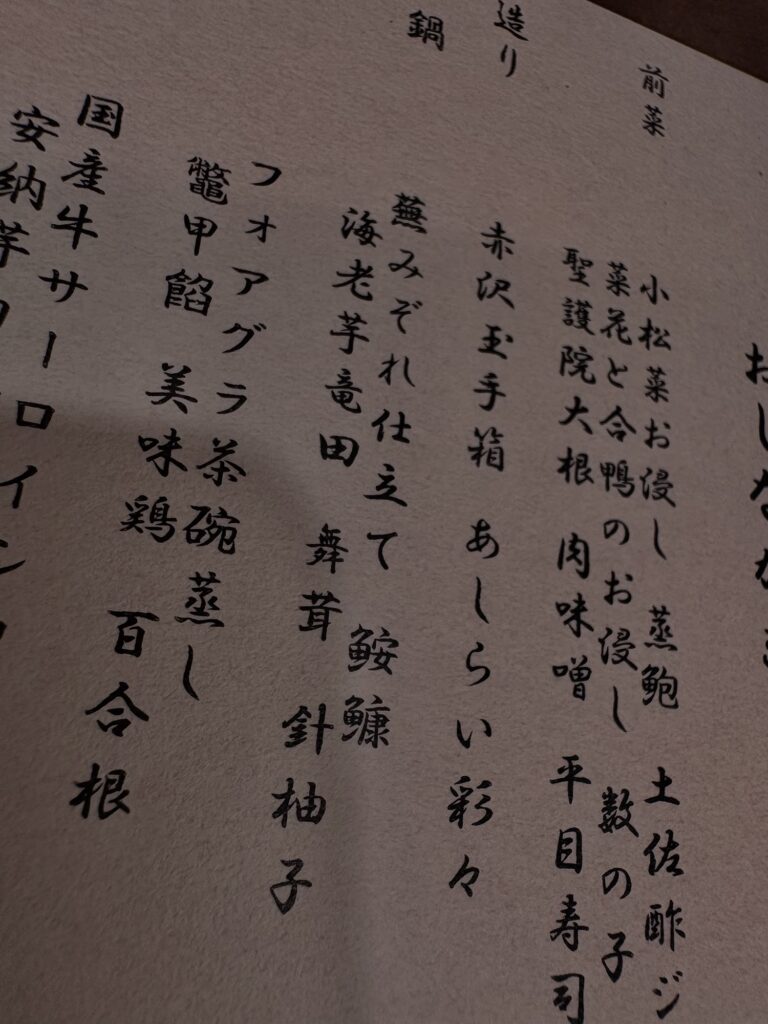 おしながき
前菜
小松菜お浸し 蒸鮑 土佐酢ジ
菜花と合鴨のお浸し 数の子
聖護院大根 肉味噌 平目寿司
造り
赤沢玉手箱 あしらい彩々
鍋
蕪みぞれ仕立て 鮟鱇
海老芋竜田 舞茸 針柚子
フォアグラ茶碗蒸し
鼈甲餡 美味鶏 百合根
国産牛サーロイン
安納芋